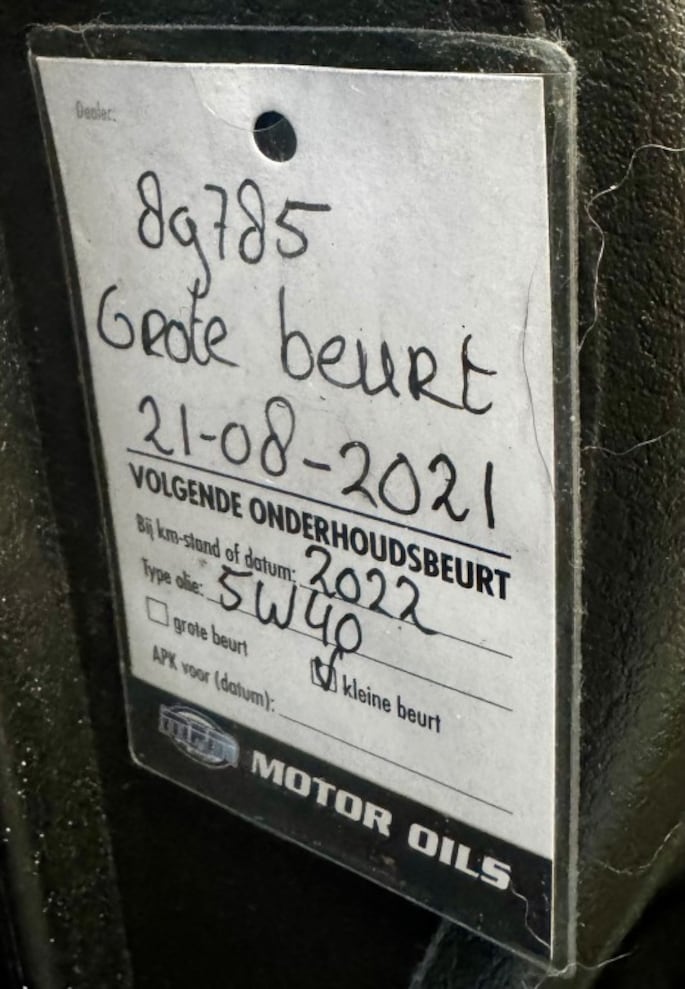 Dealer:
89785
Grote beurt
21-08-2021
VOLGENDE ONDERHOUDSBEURT
Bij km-stand of datum: 2022
Type olie: 5W40
grote beurt kleine beurt
APK voor (datum):
MOTOR OILS